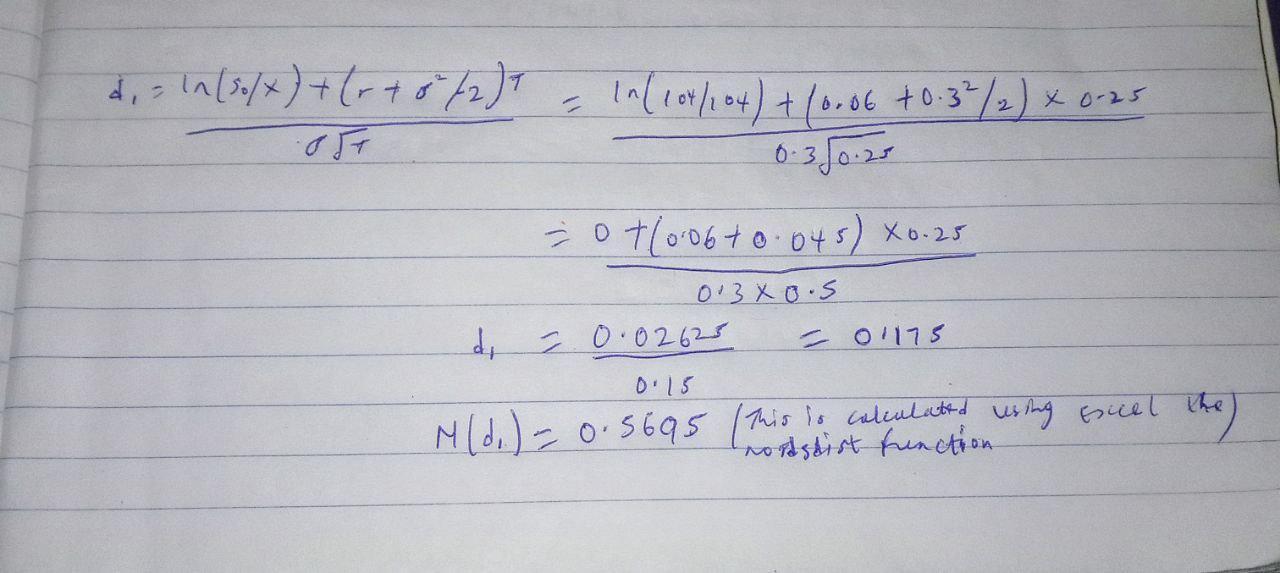 d₁ = ln(S₀/X) + (r + σ²/2)T = ln(104/104) + (0.06 + 0.3²/2) × 0.25
σ√T 0.3√0.25
= 0 + (0.06 + 0.045) × 0.25
0.3 × 0.5
d₁ = 0.02625 = 0.1175
0.15
N(d₁) = 0.5695 (This is calculated using Excel the)
function